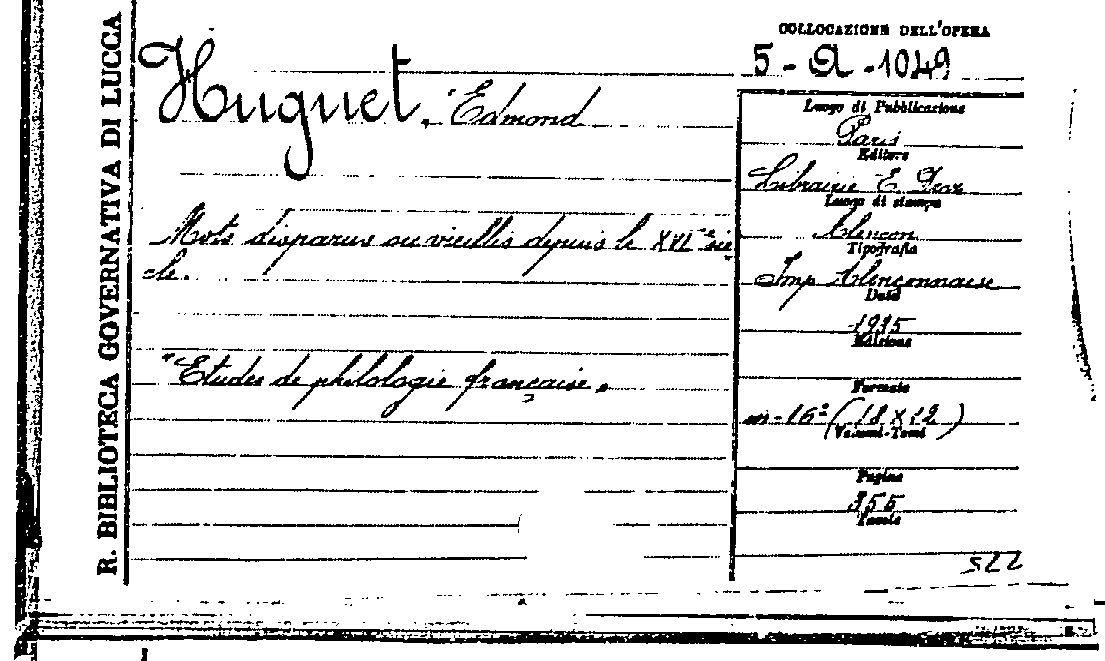 R. BIBLIOTECA GOVERNATIVA DI LUCCA
Huguet, Edmond
Mots disparus ou vieillis depuis le XVIe siè
cle.
"Etudes de philologie française.
COLLOCAZIONE DELL'OPERA
5 - A - 1049
Luogo di Pubblicazione
Paris
Editore
Librairie E. Droz
Luogo di stampa
Alençon
Tipografia
Imp Alençonnaise
Data
1935
Edizione
Formato
in-16° (18 x 12)
Volumi-Tomi
Pagine
355
Tavole
522